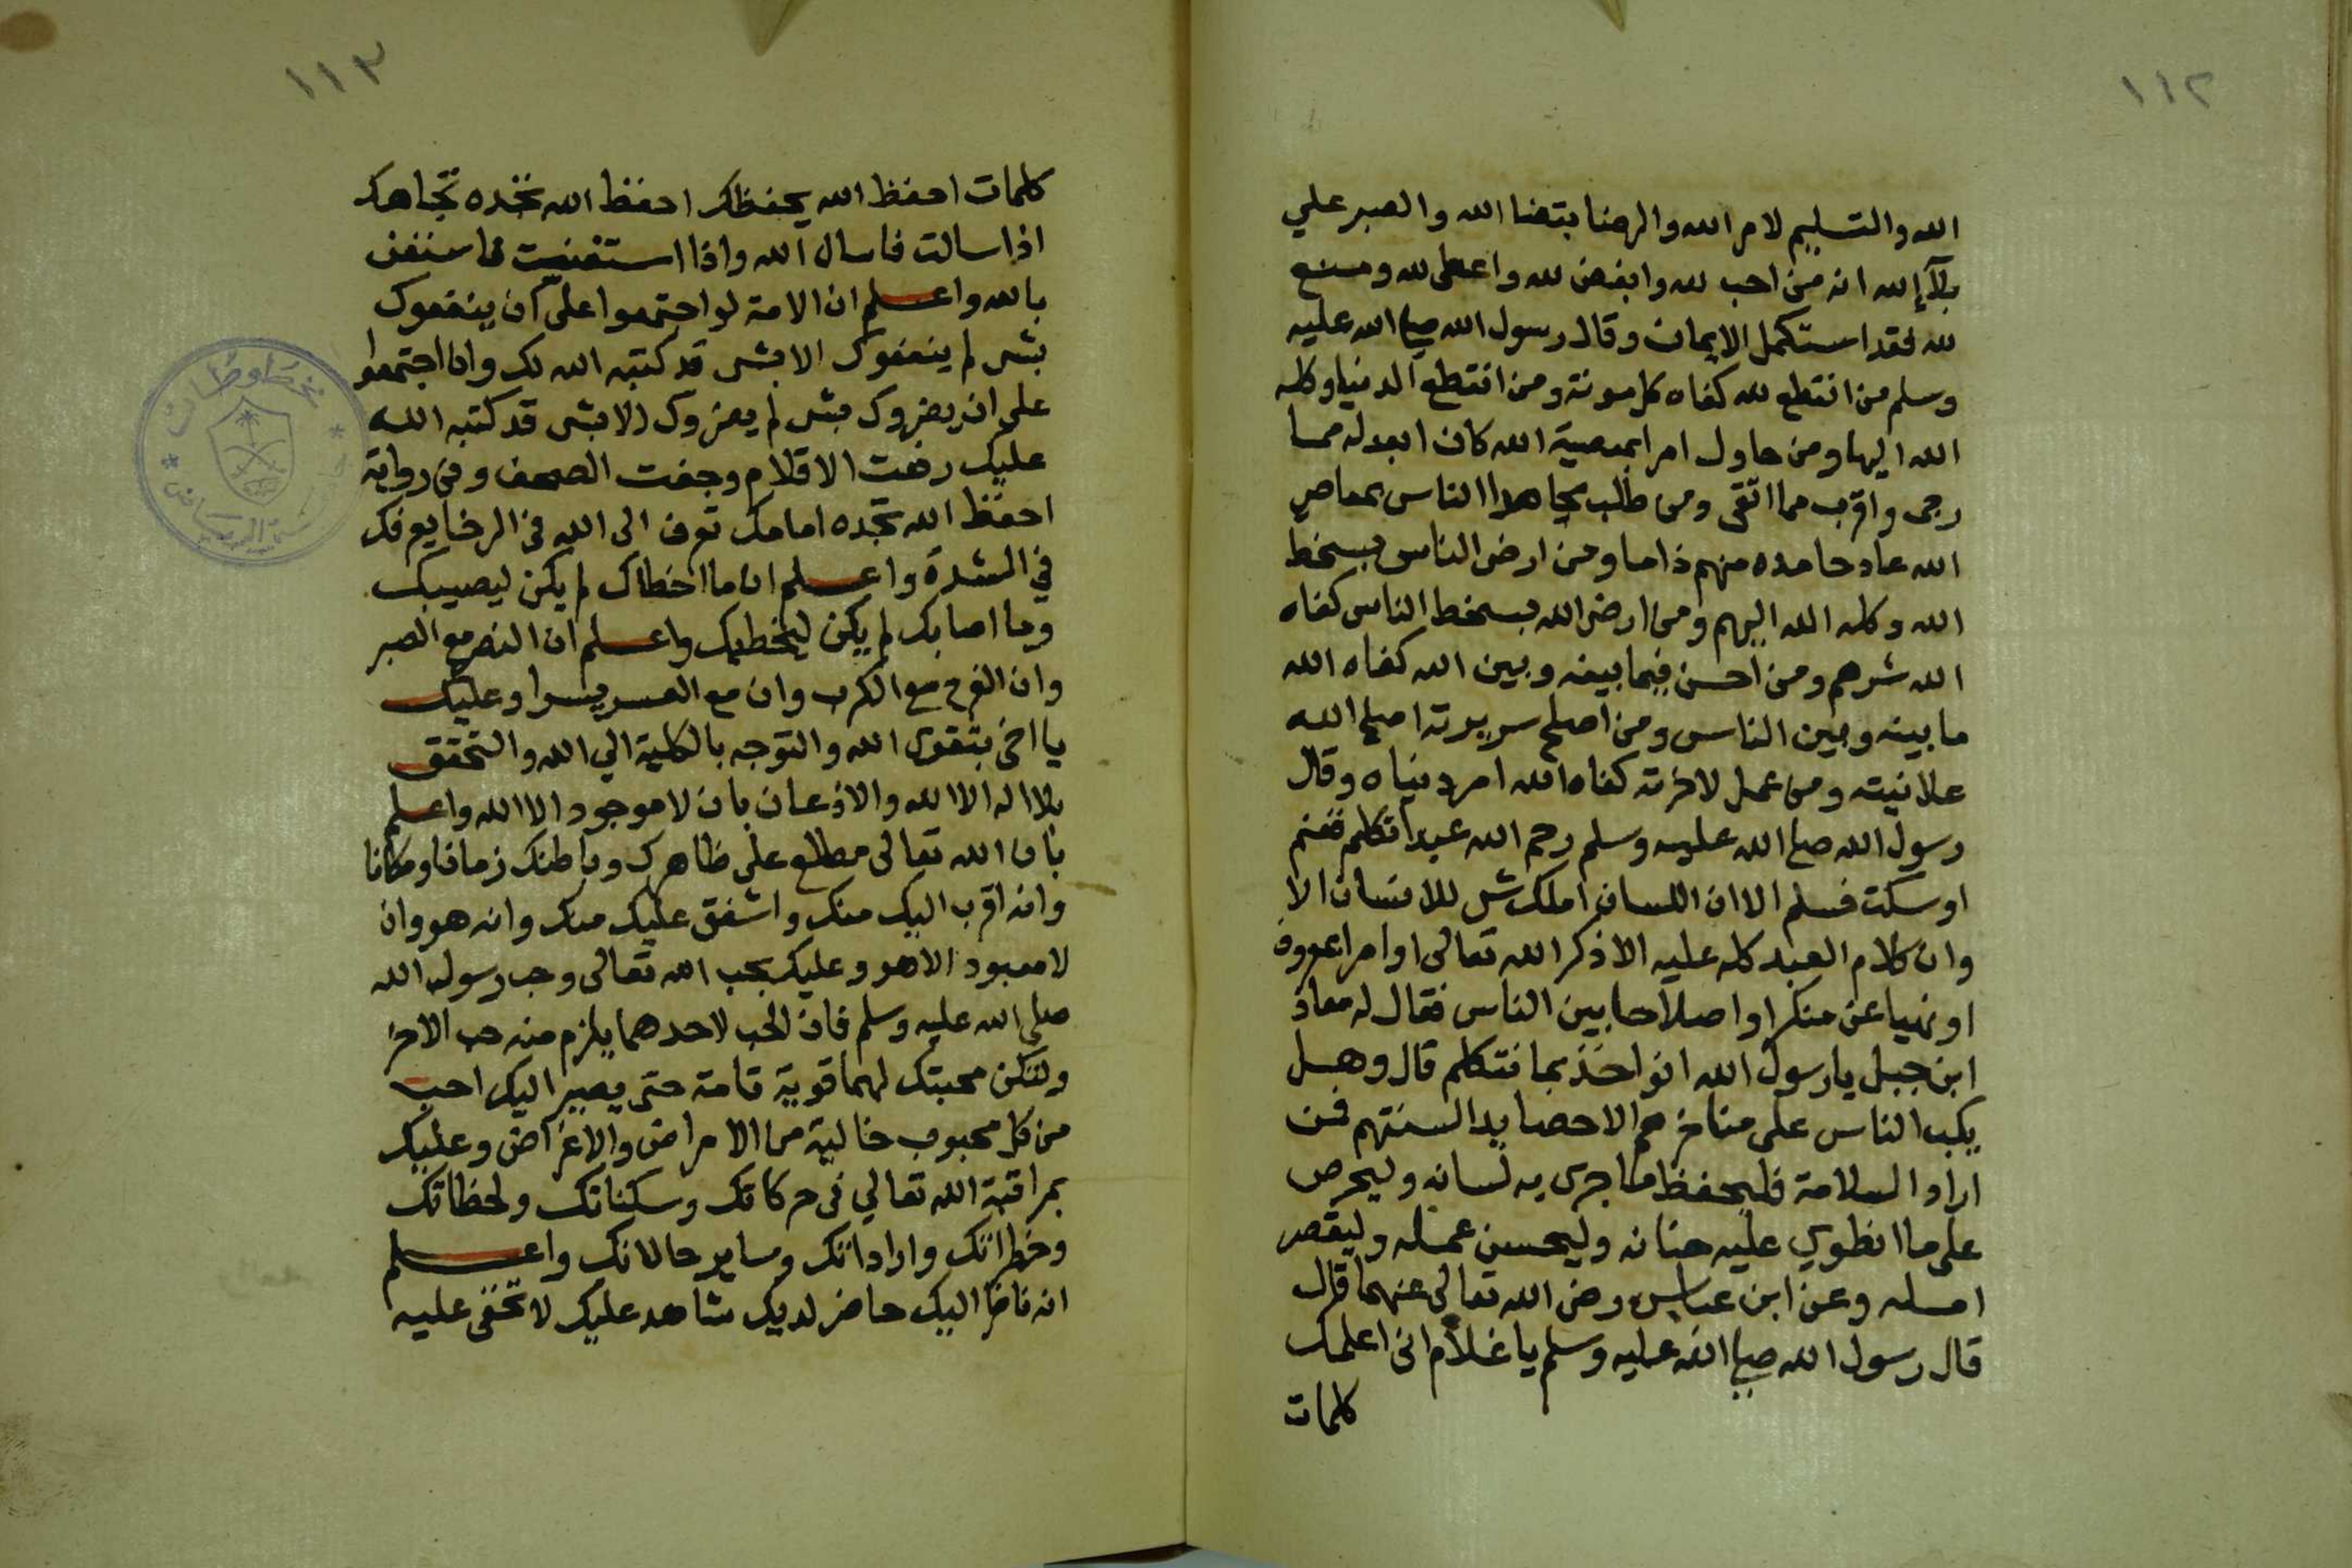 ١١٢
الله والتسليم لامر الله والرضا بقضا الله والصبر علي
بلآإ لله انه من احب لله وابغض لله واعطى لله ومنع
لله فقد استكمل الايمان وقال رسول الله صلى الله عليه
وسلم من انقطع لله كفاه كل مونة ومن انقطع الدنيا وكله
الله اليها ومن حاول امرا بمعصية الله كان ابعد له مما
رجى واقرب مما اتقى ومن طلب محامدا الناس بمعاصي
الله عاد حامده منهم ذاما ومن ارضى الناس بسخط
الله وكله الله اليهم ومن ارضى الله بسخط الناس كفاه
الله شرهم ومن احسن فيما بينه وبين الله كفاه الله
ما بينه وبين الناس ومن اصلح سريرته اصلح الله
علانيته ومن عمل لاخرته كفاه الله امر دنياه وقال
رسول الله صلى الله عليه وسلم رحم الله عبدا تكلم فغنم
او سكت فسلم الا ان اللسان املك شى للانسان الا
وان كلام العبد كله عليه الا ذكر الله تعالى او امرا بمعروف
او نهيا عن منكر او اصلاحا بين الناس فقال له معاذ
ابن جبل يا رسول الله انواخذ بما نتكلم قال وهل
يكب الناس على مناخرهم الا حصايد السنتهم فمن
اراد السلامة فليحفظ ما جرى به لسانه وليحرص
على ما انطوي عليه جنانه وليحسن عمله وليقصر
امله وعن ابن عباس رضى الله تعالى عنهما قال
قال رسول الله صلى الله عليه وسلم يا غلام انى اعلمك
كلمات
١١٣
كلمات احفظ الله يحفظك احفظ الله تجده تجاهك
اذا سالت فاسال الله واذا استعنت فاستعن
بالله واعلم ان الامة لو اجتمعوا على ان ينفعوك
بشى لم ينفعوك الا بشى قد كتبه الله لك وان اجتمعوا
على ان يضروك بشى لم يضروك الا بشى قد كتبه الله
عليك رفعت الاقلام وجفت الصحف وفى رواية
احفظ الله تجده امامك تعرف الى الله فى الرخا يعرفك
في الشدة واعلم ان ما اخطاك لم يكن ليصيبك
وما اصابك لم يكن ليخطيك واعلم ان النصر مع الصبر
وان الفرج مع الكرب وان مع العسر يسرا وعليك
يا اخى بتقوى الله والتوجه بالكلية الي الله والتحقق
بلا اله الا الله والاذعان بان لا موجود الا الله واعلم
بان الله تعالى مطلع على ظاهرك وباطنك زمانا ومكانا
وانه اقرب اليك منك واشفق عليك منك وانه هو وان
لا معبود الا هو وعليك بحب الله تعالى وحب رسول الله
صلى الله عليه وسلم فان الحب لاحدهما يلزم منه حب الاخر
ولتكن محبتك لهما قوية تامة حتى يصير اليك احب
من كل محبوب خالية من الامراض والاغراض وعليك
بمراقبة الله تعالي فى حركاتك وسكناتك ولحظاتك
وخطراتك واراداتك وساير حالاتك واعلم
انه ناظر اليك حاضر لديك شاهد عليك لا تخفى عليه